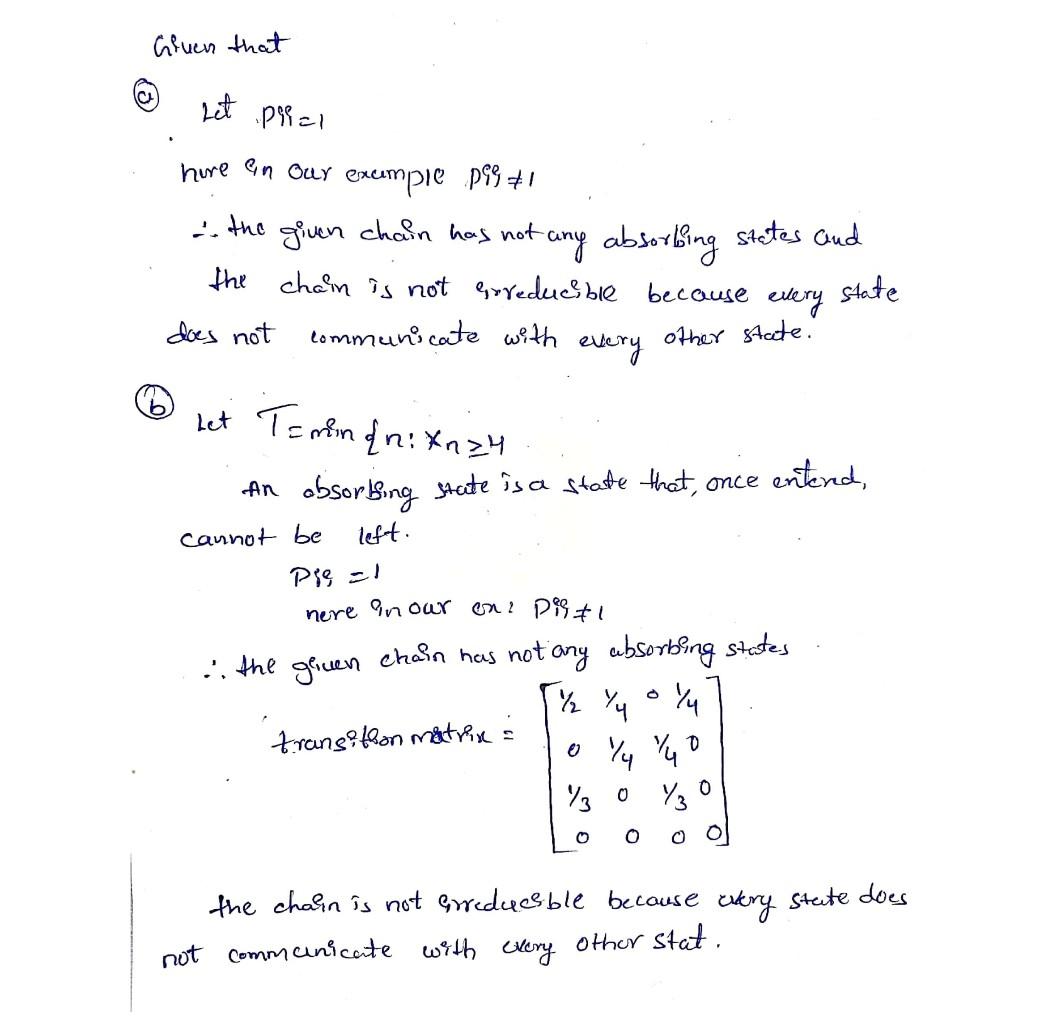 Given that
(a) Let Pii=1
here in our example Pii≠1
∴ the given chain has not any absorbing states and
the chain is not irreducible because every state
does not communicate with every other state.
(b) Let T=min{n: Xn≥4
An absorbing state is a state that, once entend,
cannot be left.
Pii =1
here in our ex: Pii≠1
∴ the given chain has not any absorbing states
transition matrix =
[ 1/2 1/4 0 1/4
0 1/4 1/4 0
1/3 0 1/3 0
0 0 0 0 ]
the chain is not irreducible because every state does
not communicate with every other stat.